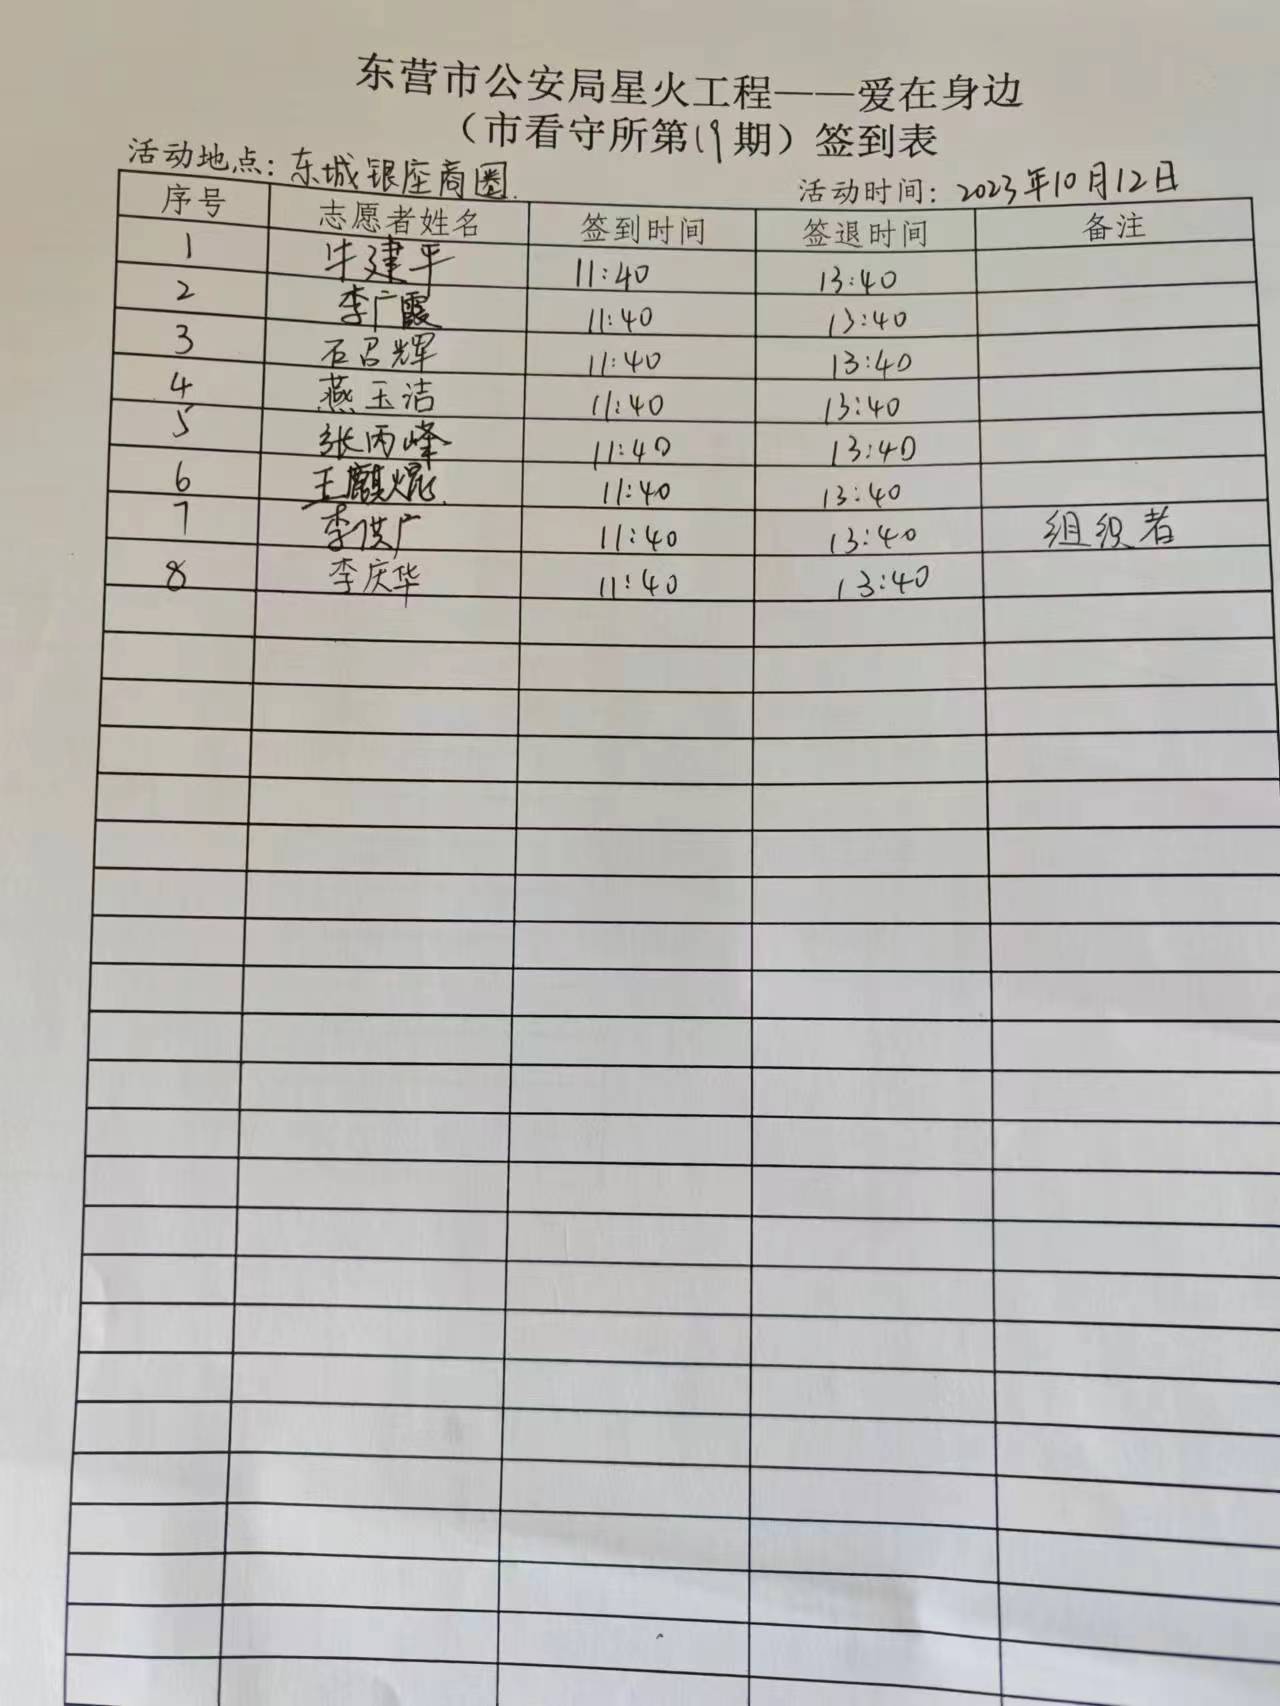 东营市公安局星火工程——爱在身边
（市看守所第19期）签到表
活动地点：东城银座商圈. 活动时间：2023年10月12日
序号 志愿者姓名 签到时间 签退时间 备注
1 牛建平 11:40 13:40
2 李广霞 11:40 13:40
3 石召辉 11:40 13:40
4 燕玉洁 11:40 13:40
5 张丙峰 11:40 13:40
6 王麒焜 11:40 13:40
7 李洪广 11:40 13:40 组织者
8 李庆华 11:40 13:40